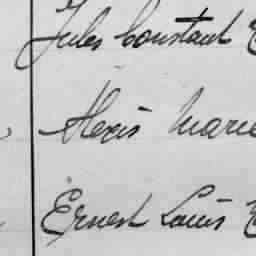 Jules Constant
Alexis Marie
Ernest Louis